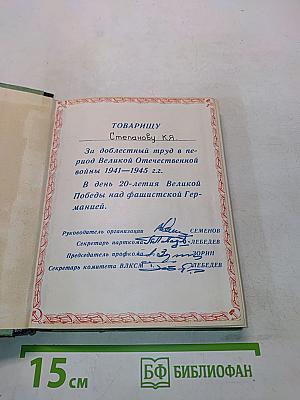 ТОВАРИЩУ
Степанову К.Я.
За доблестный труд в пе-
риод Великой Отечественной
войны 1941—1945 г.г.
В день 20-летия Великой
Победы над фашистской Гер-
манией.
Руководитель организации СЕМЕНОВ
Секретарь парткома ЛЕБЕДЕВ
Председатель профкома ЗОРИН
Секретарь комитета ВЛКСМ ЛЕБЕДЕВ
15 см БФ БИБЛИОФАН